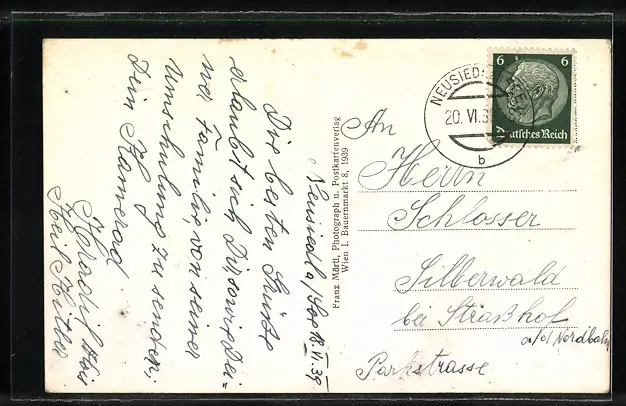 Neusiedl a/See 18.VI.39
Die besten Grüße
erlaubt sich Dir, sowie Dei=
ner Familie von seiner
Umschulung zu senden,
Dein Kamerad
Heil Hitler
Franz Märtl, Photograph u. Postkartenverlag
Wien I. Bauernmarkt 8, 1939
NEUSIEDL
20. VI. 3
b
6 6
Deutsches Reich
An
Herrn
Schlosser
Silberwald
bei Straßhof
a/d Nordbahn
Parkstrasse